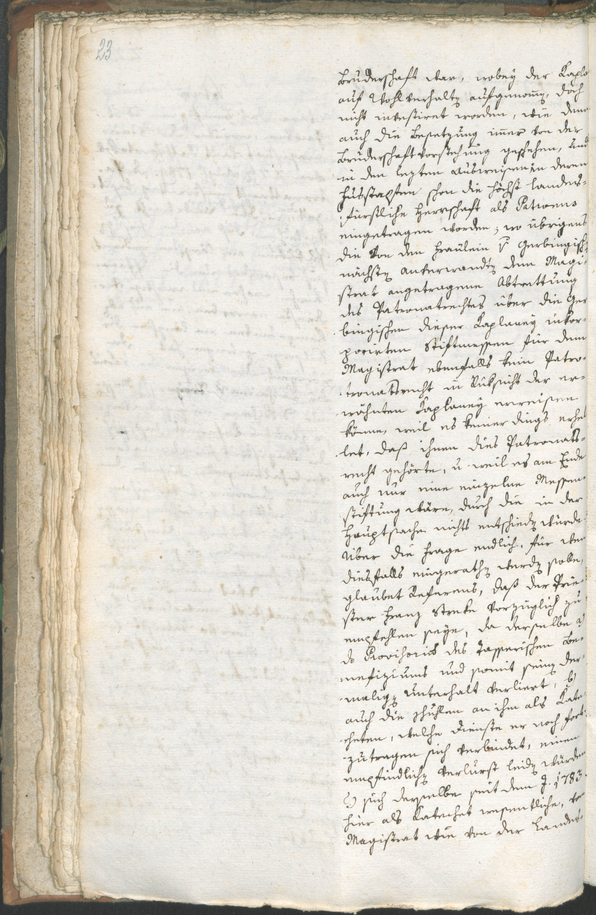 23
Bruderschaft war, wobey der Kapla
auf Wohlverhalten aufgenommen, doch
nicht investiret worden, wie dann
auch die Besetzung immer von der
Bruderschaftvorstehung geschehen, und
in den letzten Ausweisen deren
Fußstapfen schon die höchste Landes-
fürstliche Herrschaft als Patrono
eingetragen worden; wo übrigens
die von den Fräulein v Gerbingisch
nächsten anverwandten dem Magi-
strat angetragene Abtrettung
des Patronatrechtes über die Ger
bingischen dieser Kaplaney inkor-
porirten Stiftmessen für den
Magistrat ebenfalls kein Patro-
natsrecht in Rücksicht der er-
wähnten Kaplaney erweisen
könne, weil es keiner dings erhel
let, daß ihnen dies Patronats-
recht gehörte, u weil es am Ende
auch nur eine einzelne Messen
stiftung wäre, durch die in der
Hauptsache nichts entschieden würde
Über die Frage endlich, für wen
diesfalls eingerathen werden solle,
glaubet Referens, daß der Prie-
ster Franz Strele vorzüglich zu
empfehlen seye, da derselbe a
do Provisorius des Tasserischen Be-
nefiziums und somit seinen der-
maligen Unterhalt verliert, b
auch die Schulen an ihm als Kate
cheten, welche Dienste er noch fort-
zutragen sich verbindet, einen
empfindlichen Verlurst leiden würden
c) sich derselbe seit dem J. 1783.
hier als Katechet wesentliche, vom
Magistrat wie von der Landes-